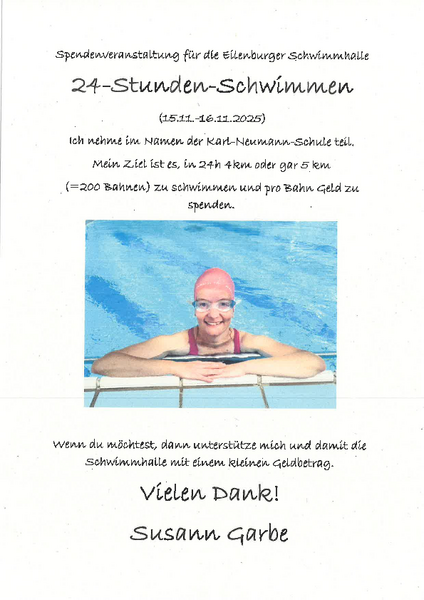 Spendenveranstaltung für die Eilenburger Schwimmhalle
24-Stunden-Schwimmen
(15.11.-16.11.2025)
Ich nehme im Namen der Karl-Neumann-Schule teil.
Mein Ziel ist es, in 24h 4km oder gar 5 km
(=200 Bahnen) zu schwimmen und pro Bahn Geld zu
spenden.
Wenn du möchtest, dann unterstütze mich und damit die
Schwimmhalle mit einem kleinen Geldbetrag.
Vielen Dank!
Susann Garbe